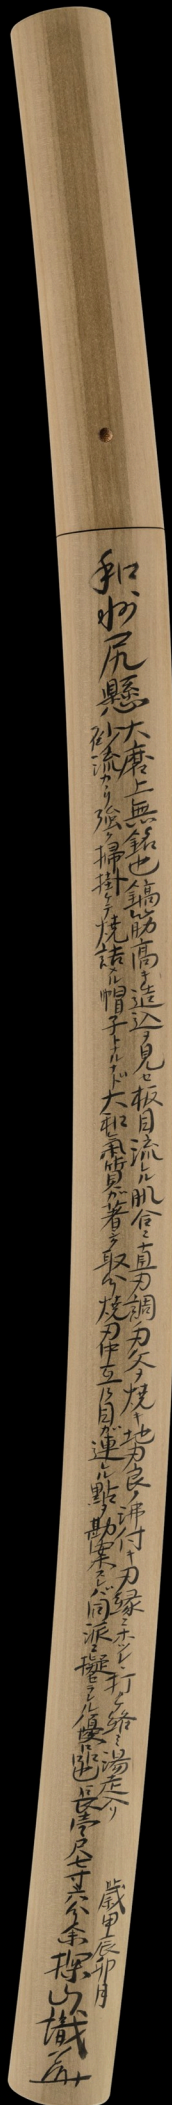 和州尻懸
大磨上無銘也鎬筋高キ造込ヲ見セ板目流レル肌合ニ直刃調ノ刃文ヲ焼キ地刃良ク沸付キ刃縁ニホツレ打ノケ絡ミ湯走入リ
砂流カリ強ク掃掛ケテ焼詰メル帽子トナルナド大和気質ガ著シク取分ケ焼刃中互ノ目ガ連レル點ヲ勘案スレバ同派ニ擬セラレル優品也
長壱尺七寸六分余
探山識
歳甲辰卯月